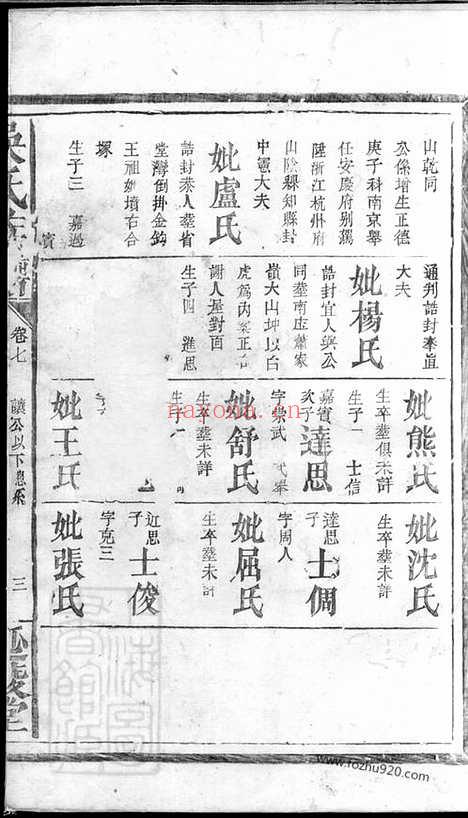 山乾同
公係增生正德
庚子科南京舉
任安慶府別駕
陞浙江杭州府
山陰縣知縣封
中憲大夫
妣盧氏
誥封恭人葬省
堂灣倒掛金鈎
王祖妣墳右合
塚
生子三 嘉過
賓
通判誥封奉直
大夫
妣楊氏
誥封宜人與公
同葬南庄蕭家
嶺大山坤以白
虎為丙案正合
謝人屋對面
生子四 進思
妣熊氏
生卒葬俱未詳
生子一 士信
達思
嘉賓
次子
字崇武 武舉
妣舒氏
生卒葬未詳
生子一
妣王氏
妣沈氏
生卒葬未詳
士倜
達思
子
字周人
妣屈氏
生卒葬未詳
士俊
近思
子
字克三
妣張氏
吳氏
卷七
讓公以下息系
三
堂
nayona.cn
www.fozhu920.com